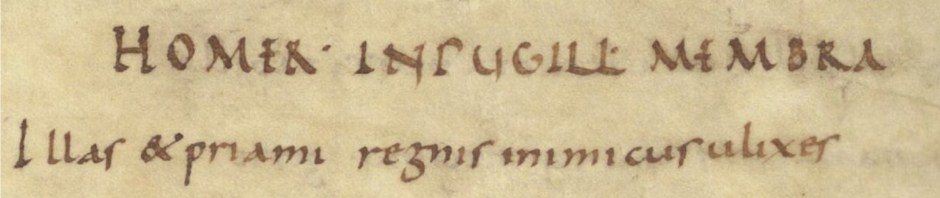 HOMER· INPUGILL· MEMBRA
Illas &priami regnis inimicus ulixes